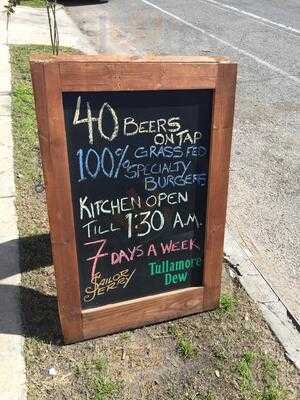 40 BEERS
ON TAP
100% GRASS FED
SPECIALTY
BURGERS
KITCHEN OPEN
TILL 1:30 A.M.
7 DAYS A WEEK
SAILOR
JERRY
Tullamore
Dew